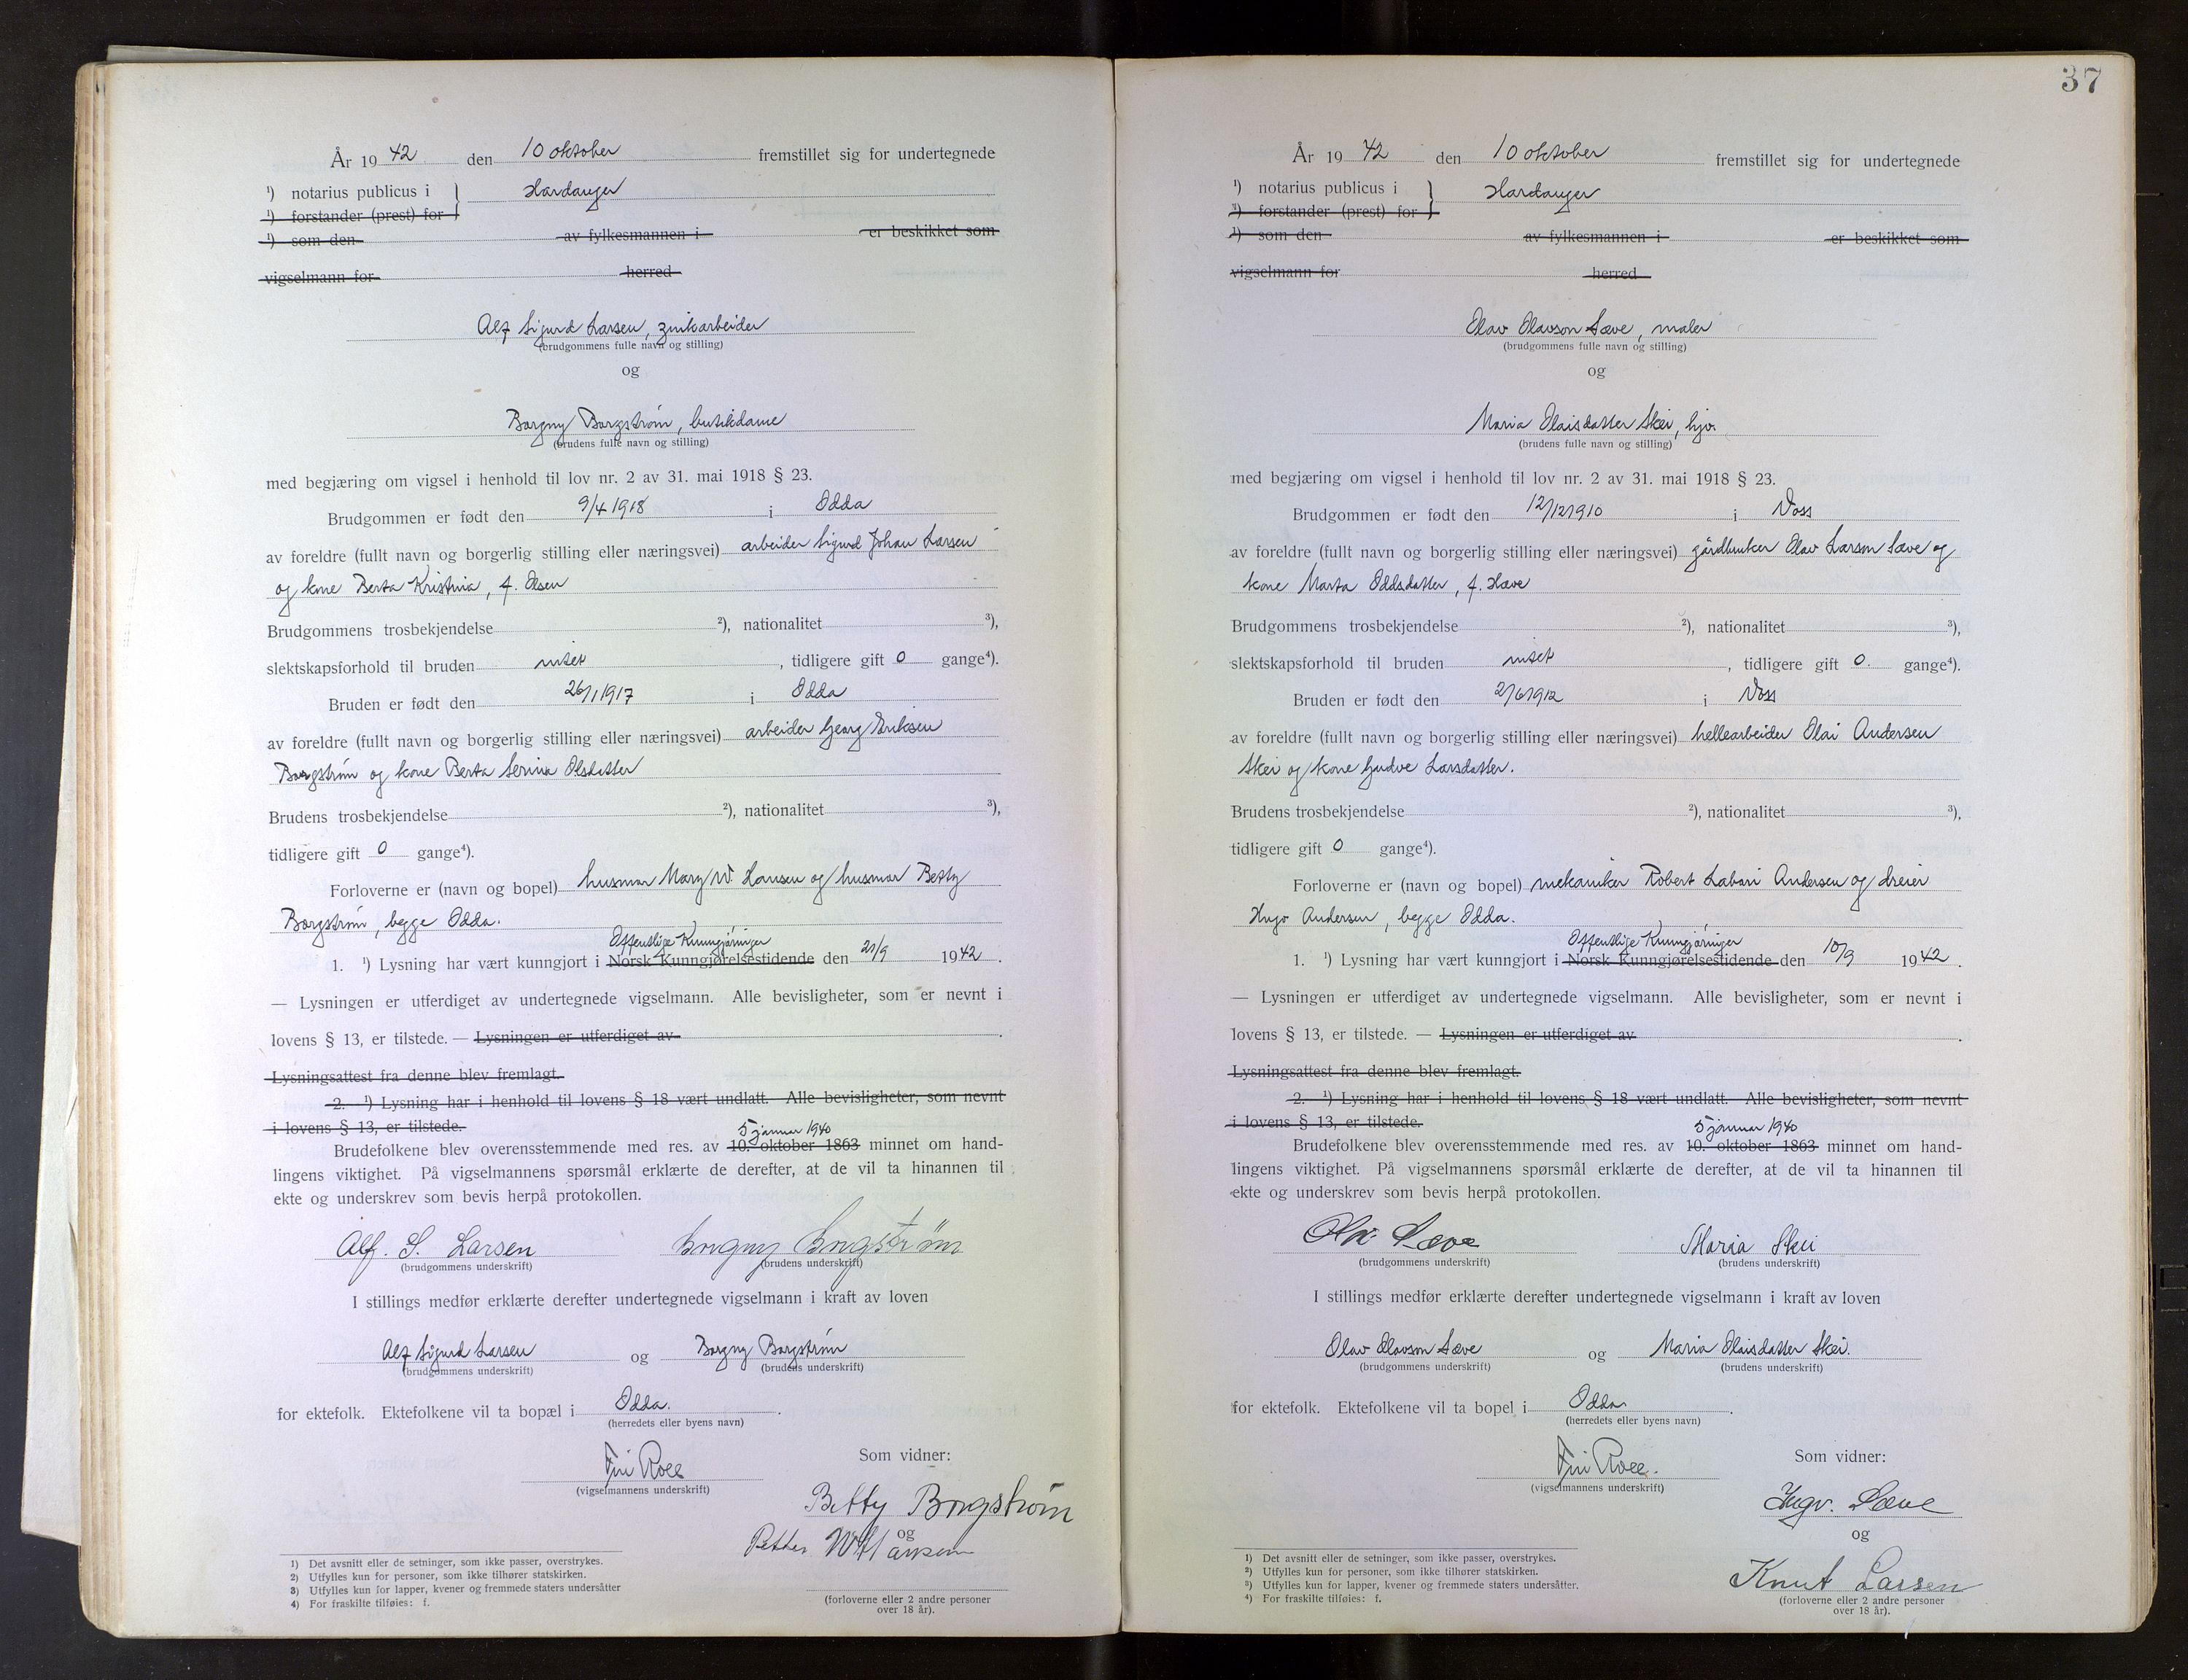 År 1942 den 10 oktober fremstillet sig for undertegnede
¹) notarius publicus i } Hardanger
¹) forstander (prest) for
¹) som den av fylkesmannen i er beskikket som
vigselmann for herred
Alf Sigurd Larsen, zinkarbeider
(brudgommens fulle navn og stilling)
og
Borgny Borgstrøm, butikdame
(brudens fulle navn og stilling)
med begjæring om vigsel i henhold til lov nr. 2 av 31. mai 1918 § 23.
Brudgommen er født den 9/4 1918 i Odda
av foreldre (fullt navn og borgerlig stilling eller næringsvei) arbeider Sigurd Johan Larsen
og kone Berta Kristina, f. Olsen
Brudgommens trosbekjendelse ²), nationalitet ³),
slektskapsforhold til bruden intet , tidligere gift 0 gange⁴).
Bruden er født den 26/1 1917 i Odda
av foreldre (fullt navn og borgerlig stilling eller næringsvei) arbeider Georg Eriksen
Borgstrøm og kone Berta Serina Olsdatter
Brudens trosbekjendelse ²), nationalitet ³),
tidligere gift 0 gange⁴).
Forloverne er (navn og bopel) husmor Mary W. Hansen og husmor Betty
Borgstrøm, begge Odda.
Offentlige Kunngjøringer
1. ¹) Lysning har vært kunngjort i Norsk Kunngjørelsestidende den 21/9 1942.
— Lysningen er utferdiget av undertegnede vigselmann. Alle bevisligheter, som er nevnt i
lovens § 13, er tilstede. — Lysningen er utferdiget av .
Lysningsattest fra denne blev fremlagt.
2. ¹) Lysning har i henhold til lovens § 18 vært undlatt. Alle bevisligheter, som nevnt
i lovens § 13, er tilstede.
5 januar 1940
Brudefolkene blev overensstemmende med res. av 10. oktober 1863 minnet om hand-
lingens viktighet. På vigselmannens spørsmål erklærte de derefter, at de vil ta hinannen til
ekte og underskrev som bevis herpå protokollen.
Alf. S. Larsen Borgny Borgstrøm
(brudgommens underskrift) (brudens underskrift)
I stillings medfør erklærte derefter undertegnede vigselmann i kraft av loven
Alf Sigurd Larsen og Borgny Borgstrøm
(brudgommens underskrift) (brudens underskrift)
for ektefolk. Ektefolkene vil ta bopæl i Odda.
(herredets eller byens navn)
Som vidner:
Finn Roll
(vigselmannens underskrift)
Betty Borgstrøm
og
Petter W Hansen
(forloverne eller 2 andre personer
over 18 år).
1) Det avsnitt eller de setninger, som ikke passer, overstrykes.
2) Utfylles kun for personer, som ikke tilhører statskirken.
3) Utfylles kun for lapper, kvener og fremmede staters undersåtter
4) For fraskilte tilføies: f.
37
År 1942 den 10 oktober fremstillet sig for undertegnede
¹) notarius publicus i } Hardanger
¹) forstander (prest) for
¹) som den av fylkesmannen i er beskikket som
vigselmann for herred
Olav Olavson Sæve, maler
(brudgommens fulle navn og stilling)
og
Maria Olaisdatter Skei, hjv.
(brudens fulle navn og stilling)
med begjæring om vigsel i henhold til lov nr. 2 av 31. mai 1918 § 23.
Brudgommen er født den 12/12 1910 i Voss
av foreldre (fullt navn og borgerlig stilling eller næringsvei) gårdbruker Olav Larson Sæve og
kone Marta Oddsdatter, f. Hæve
Brudgommens trosbekjendelse ²), nationalitet ³),
slektskapsforhold til bruden intet , tidligere gift 0. gange⁴).
Bruden er født den 2/6 1912 i Voss
av foreldre (fullt navn og borgerlig stilling eller næringsvei) hellearbeider Olai Andersen
Skei og kone Gudve Larsdatter.
Brudens trosbekjendelse ²), nationalitet ³),
tidligere gift 0 gange⁴).
Forloverne er (navn og bopel) mekaniker Robert Labori Andersen og dreier
Hugo Andersen, begge Odda.
Offentlige Kunngjøringer
1. ¹) Lysning har vært kunngjort i Norsk Kunngjørelsestidende den 10/9 1942.
— Lysningen er utferdiget av undertegnede vigselmann. Alle bevisligheter, som er nevnt i
lovens § 13, er tilstede. — Lysningen er utferdiget av .
Lysningsattest fra denne blev fremlagt.
2. ¹) Lysning har i henhold til lovens § 18 vært undlatt. Alle bevisligheter, som nevnt
i lovens § 13, er tilstede.
5 januar 1940
Brudefolkene blev overensstemmende med res. av 10. oktober 1863 minnet om hand-
lingens viktighet. På vigselmannens spørsmål erklærte de derefter, at de vil ta hinannen til
ekte og underskrev som bevis herpå protokollen.
Olav Sæve Maria Skei
(brudgommens underskrift) (brudens underskrift)
I stillings medfør erklærte derefter undertegnede vigselmann i kraft av loven
Olav Olavson Sæve og Maria Olaisdatter Skei.
(brudgommens underskrift) (brudens underskrift)
for ektefolk. Ektefolkene vil ta bopel i Odda.
(herredets eller byens navn)
Som vidner:
Finn Roll.
(vigselmannens underskrift)
Ingv. Sæve
og
Knut Larsen
(forloverne eller 2 andre personer
over 18 år).
1) Det avsnitt eller de setninger, som ikke passer, overstrykes.
2) Utfylles kun for personer, som ikke tilhører statskirken.
3) Utfylles kun for lapper, kvener og fremmede staters undersåtter.
4) For fraskilte tilføies: f.